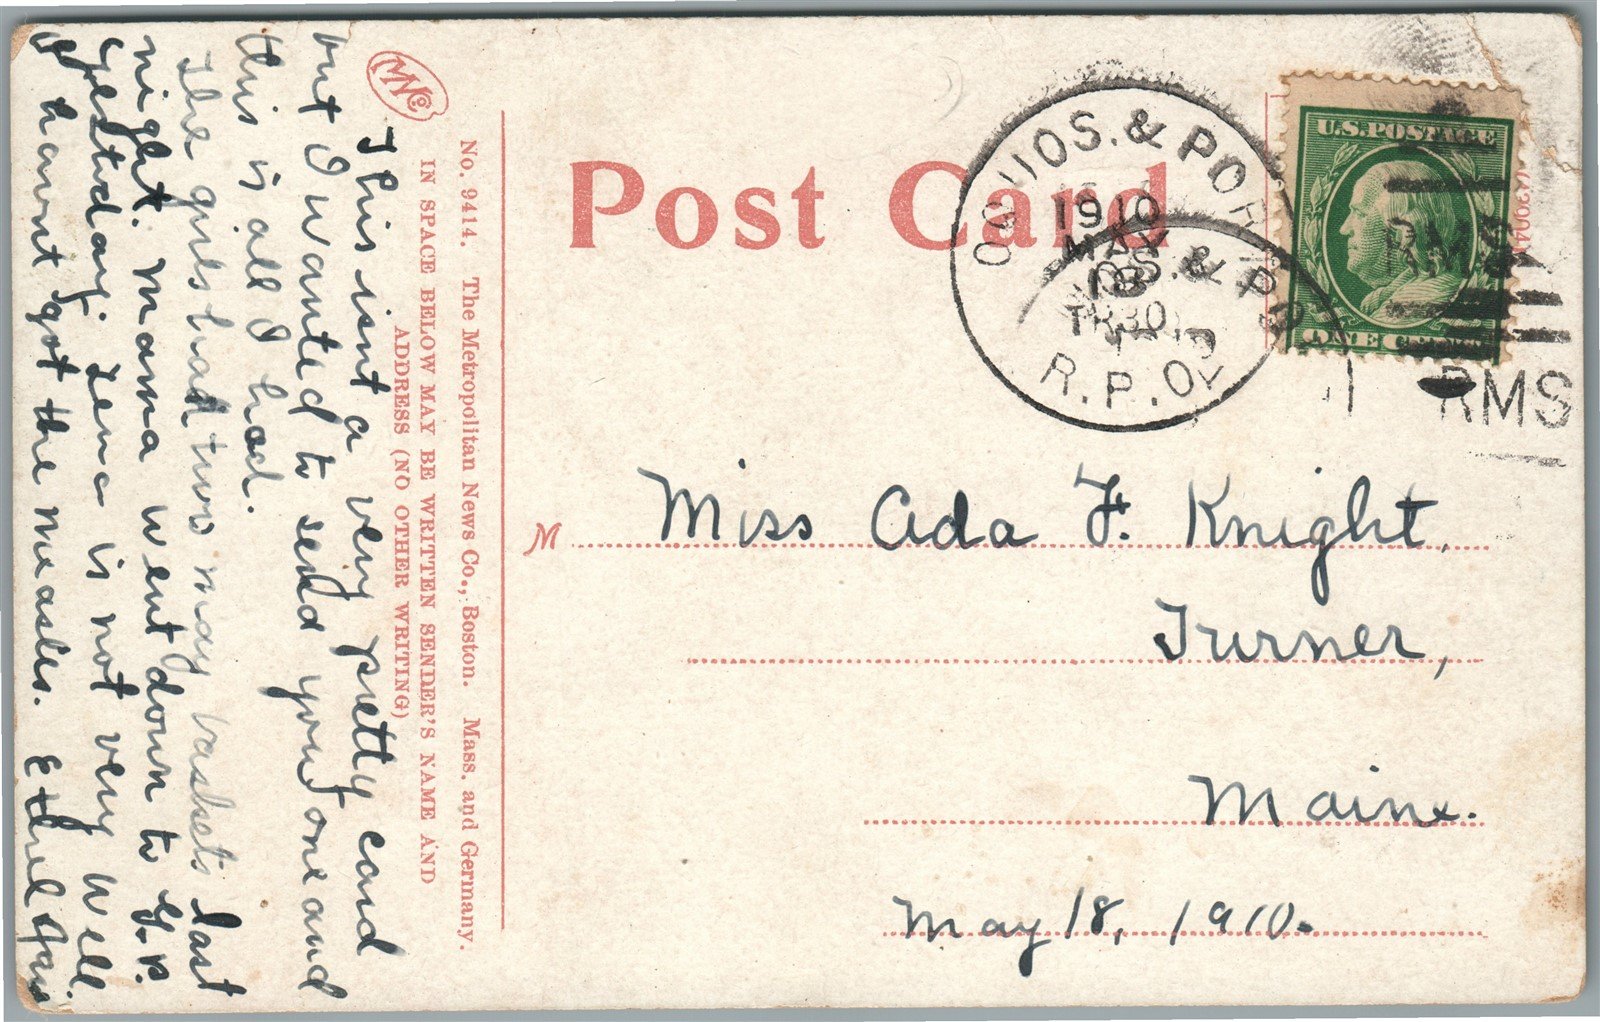 Post Card
U.S. POSTAGE
ONE
& POR
1910
MAY
18
TR 30
R.P.O.
RMS
RMS
MNCo
No. 9414. The Metropolitan News Co., Boston. Mass. and Germany.
IN SPACE BELOW MAY BE WRITTEN SENDER'S NAME AND
ADDRESS (NO OTHER WRITING)
This isnt a very pretty card
but I wanted to send you one and
this is all I had.
The girls had two may baskets last
night. Mama went down to
yesterday. is not very well.
havnt got the measles. Ethel
M
Miss Ada F. Knight,
Turner,
Maine.
May 18, 1910.